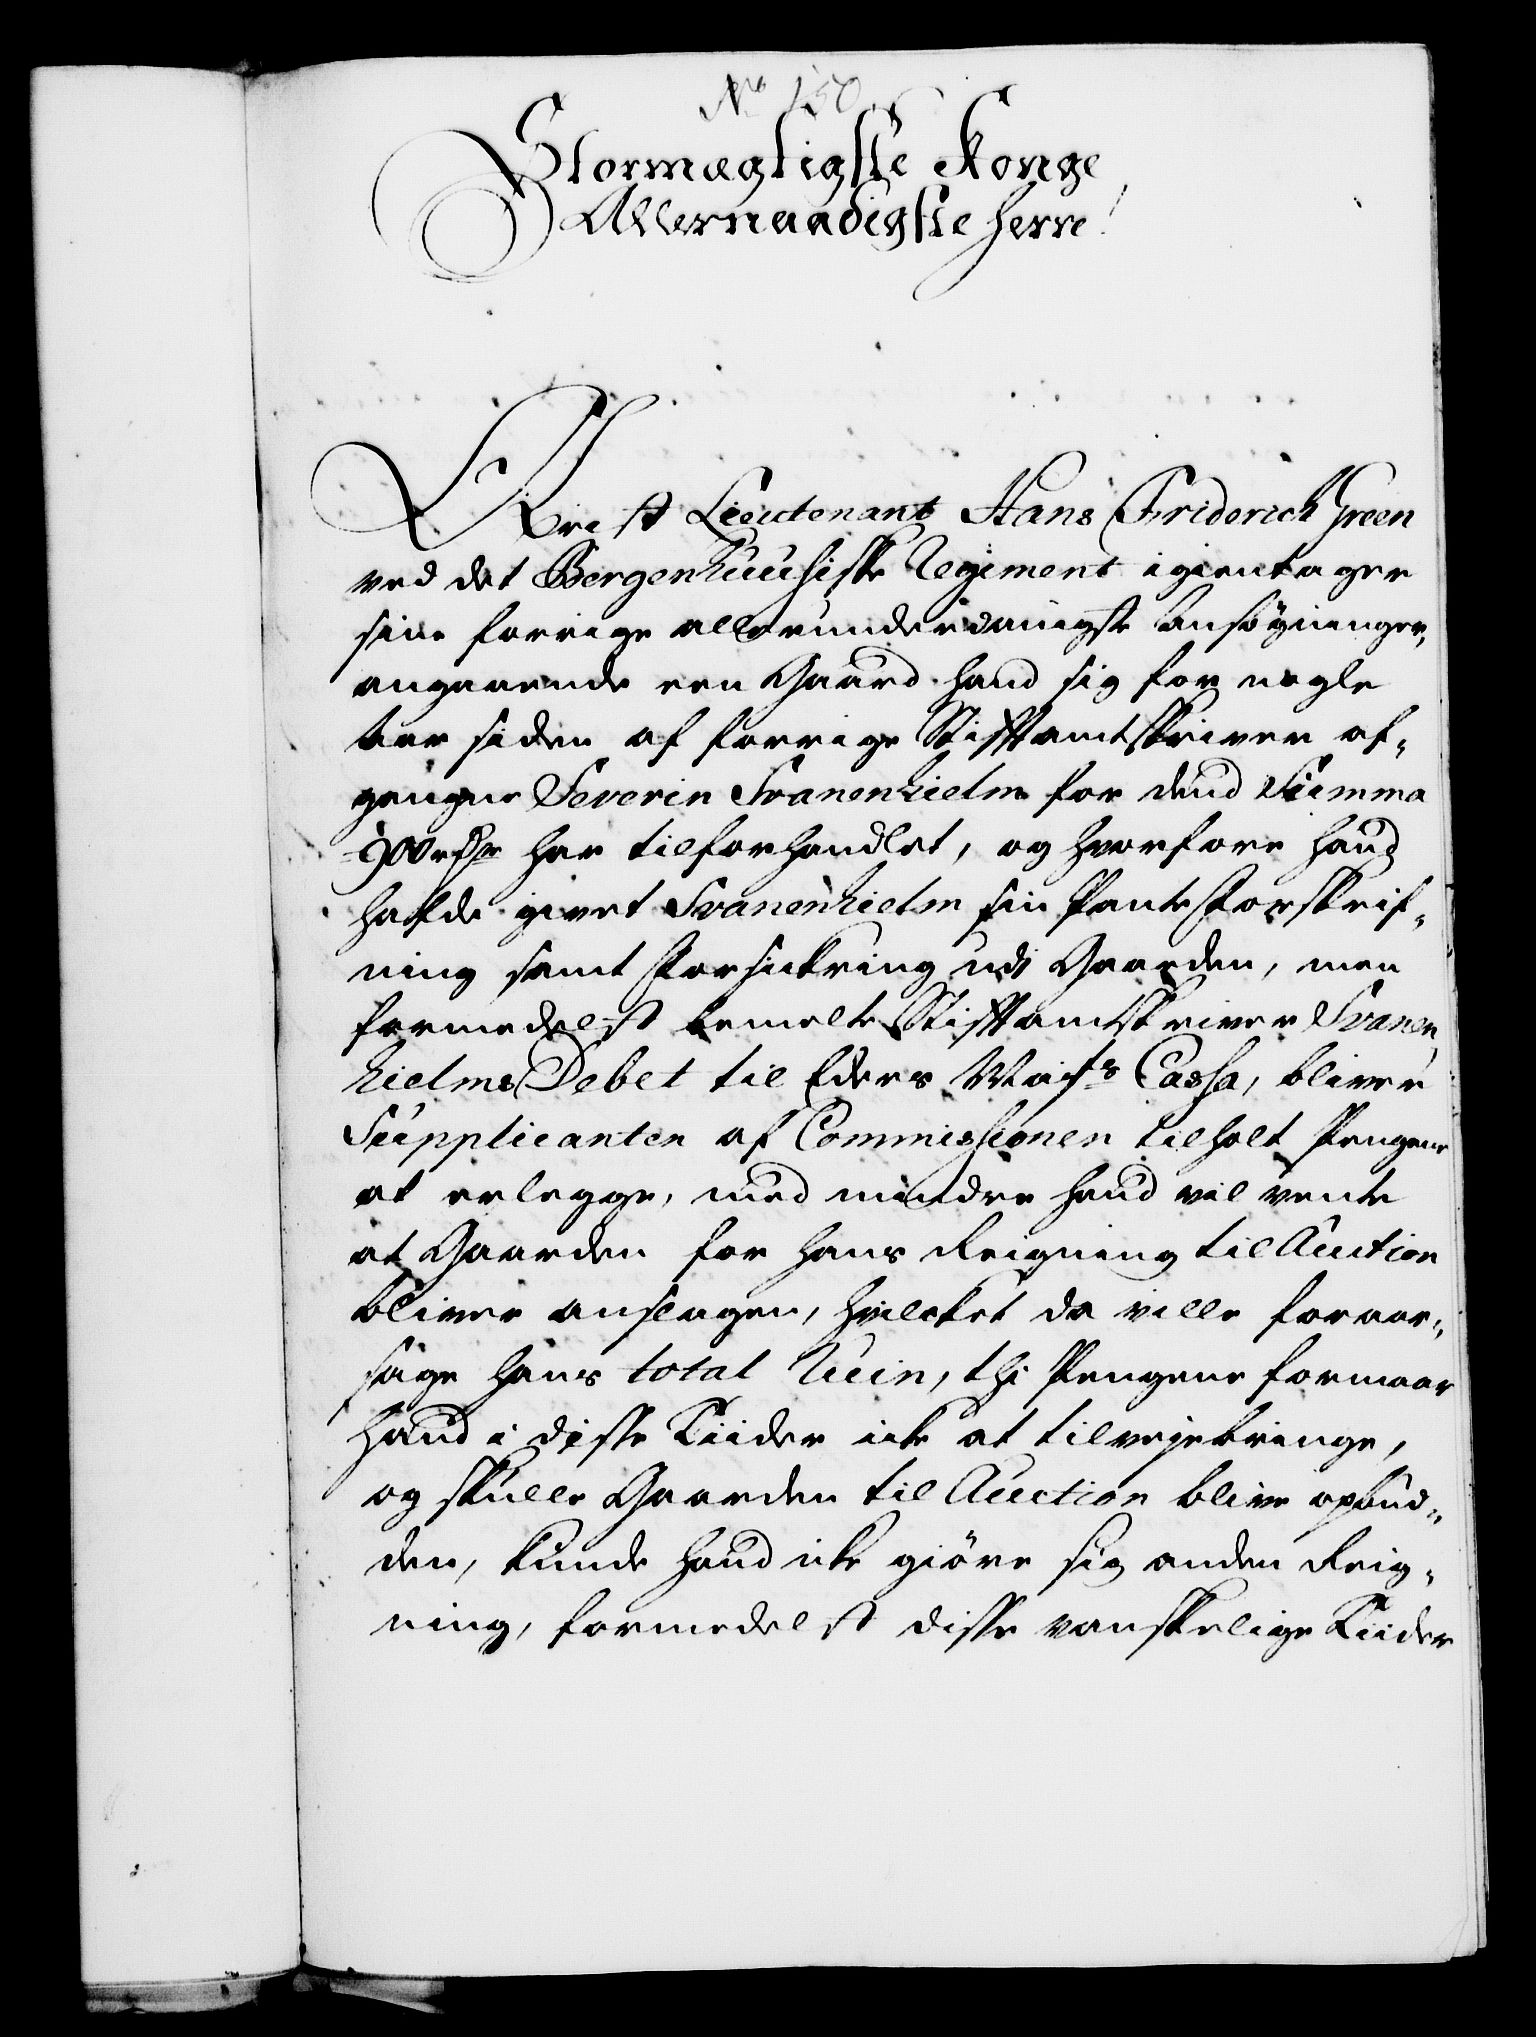 No 150
Stormægtigste Konge
Allernaadigste Herre!
Obrist Lieutenant Hans Friderich Green
ved det Bergenhuusiske Regiment igientager
sine forrige allerunderdanigste Ansøgninger,
angaaende een Gaard hand sig for nogle
Aar siden af forrige Stifftamtskriver af-
gangne Severin Svanenhielm for dend Summa
900 rdr har tilforhandlet, og hvorfore hand
hafde givet Svanenhielm sin Pante Forskrif-
ning samt Forsickring udi Gaarden, men
formedelst bemelte Stifftamtskriver Svanen-
hielms Debet til Eders Maj:ts Cassa, bliver
Supplicanten af Commissionen tilholt Pengene
at erlegge, med mindre hand vil vente
at Gaarden for hans Reigning til Auction
bliver anslagen, hvilcket da ville foraar-
sage hans total Ruin, thi Pengene formaar
hand i disse Tiider icke at tilvejebringe,
og skulle Gaarden til Auction blive opbud-
den, kunde hand icke giöre sig anden Reig-
ning, formedelst disse vanskelige Tiider